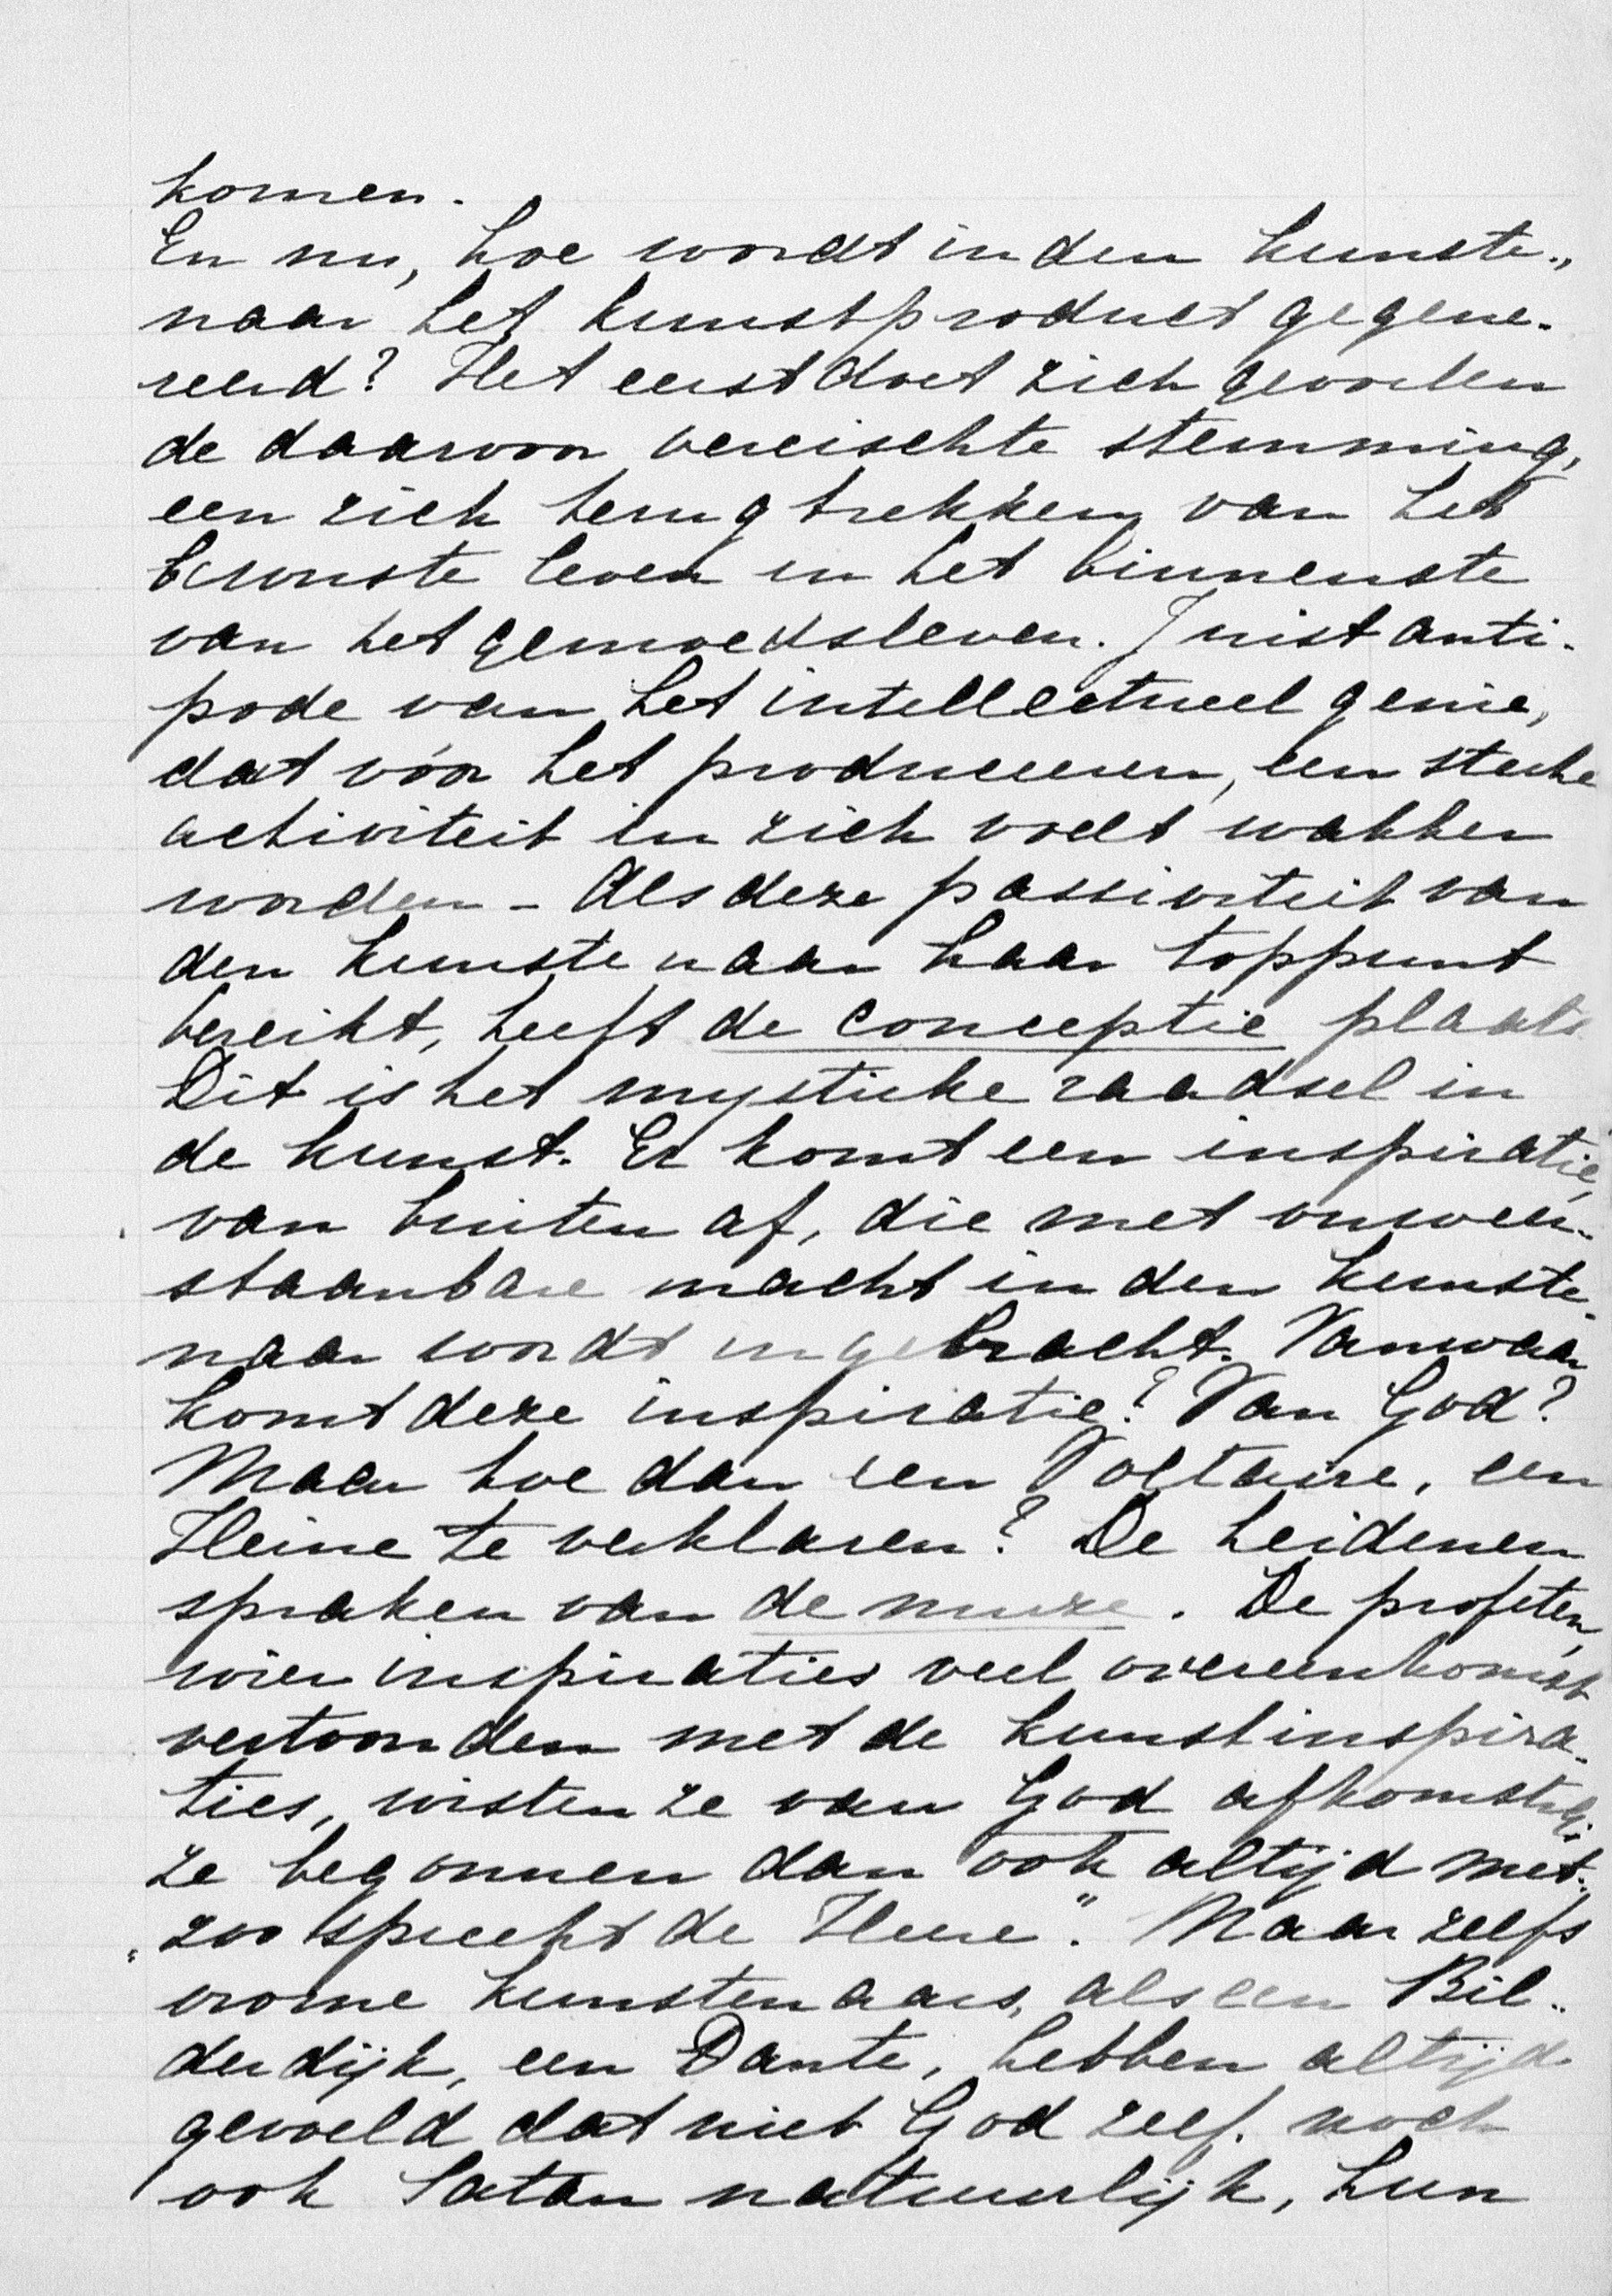 komen.
En nu, hoe wordt in den kunste„
naar het kunstproduct gegene-
reerd? Het eerst doet zich gevoelen
de daarvoor vereischte stemming,
een zich terugtrekken van het
bewuste leven in het binnenste
van het gemoedsleven. Juist anti-
pode van het intellectueel genie,
dat vóór het produceeren, een sterke
activiteit in zich voelt wakker
worden – Als deze passiviteit van
den kunstenaar haar toppunt
bereikt, heeft de conceptie plaats
Dit is het mystieke raadsel in
de kunst. Er komt een inspiratie,
van buiten af, die met onweer-
staanbare macht in den kunste-
naar wordt ingebracht. Vanwaar
komt deze inspiratie? Van God?
Maar hoe dan een Voltaire, een
Heine te verklaren? De heidenen
spraken van de muze. De profeten,
wier inspiraties veel overeenkomst
vertoonden met de kunstinspira-
ties, wisten ze van God afkomstig;
ze begonnen dan ook altijd met:
„zoo spreekt de Heere". Maar zelfs
vrome kunstenaars, als een Bil-
derdijk, een Dante, hebben altijd
gevoeld dat niet God zelf, noch
ook Satan natuurlijk, hun